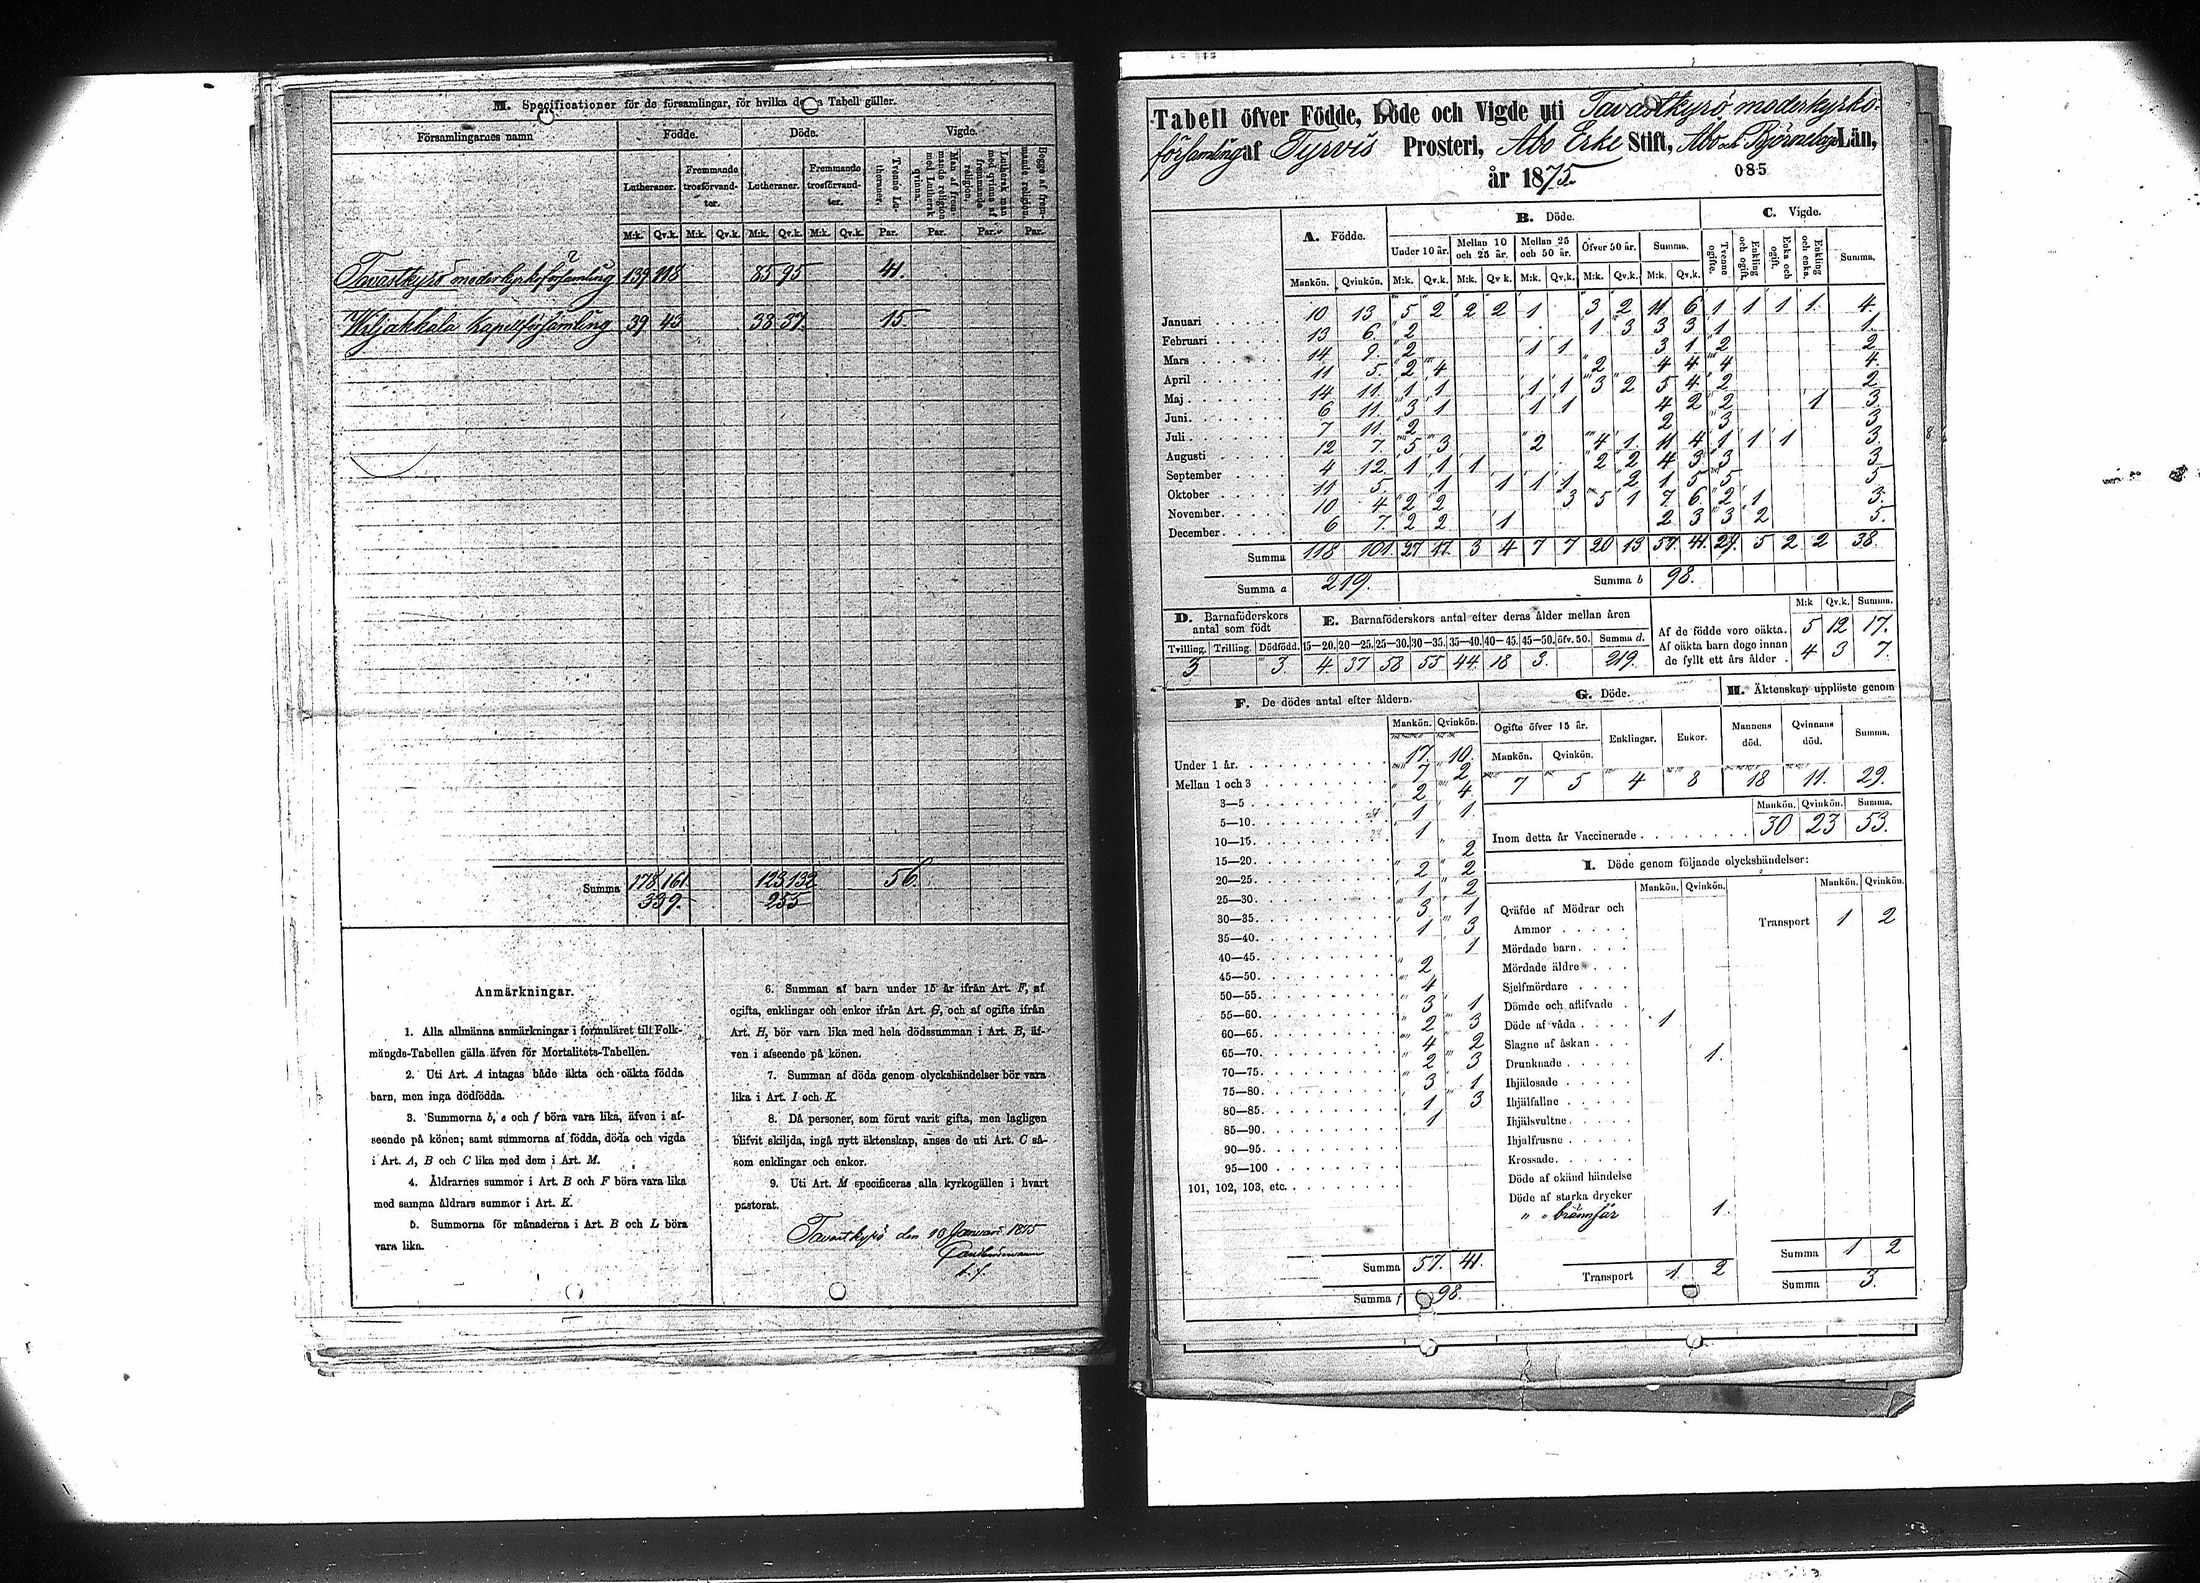 M. Specificationer för de församlingar, för hvilka denna Tabell gäller.
Församlingarnes namn Födde. Döde. Vigde.
Lutheraner. Fremmande trosförvandter. Lutheraner. Fremmande trosförvandter. Trenne Lutheraner. Man af fremmande religion med Luthersk qvinna. Luthersk man med qvinna af fremmande religion. Begge af fremmande religion.
M:k. Qv.k. M:k. Qv.k. M:k. Qv.k. M:k. Qv.k. Par. Par. Par. Par.
Tavastkyrö moderkyrkoförsamling 139 118 85 95 41.
Wiljakkala Kapellförsamling 39 43 38 37. 15.
Summa 178 161 123 132 56.
339. 255
Anmärkningar.
1. Alla allmänna anmärkningar i formuläret till Folk-
mängds-Tabellen gälla äfven för Mortalitets-Tabellen.
2. Uti Art. A intagas både äkta och oäkta födda
barn, men inga dödfödda.
3. Summorna b, e och f böra vara lika, äfven i af-
seende på könen; samt summorna af födda, döda och vigda
i Art. A, B och C lika med dem i Art. M.
4. Åldrarnes summor i Art. B och F böra vara lika
med samma åldrars summor i Art. K.
5. Summorna för månaderna i Art. B och L böra
vara lika.
6. Summan af barn under 15 år ifrån Art. F, af
ogifta, enklingar och enkor ifrån Art. G, och af ogifte ifrån
Art. H, bör vara lika med hela dödssumman i Art. B, äf-
ven i afseende på könen.
7. Summan af döda genom olyckshändelser bör vara
lika i Art. I och K.
8. Då personer, som förut varit gifta, men lagligen
blifvit skiljda, ingå nytt äktenskap, anses de uti Art. C så-
som enklingar och enkor.
9. Uti Art. M specificeras alla kyrkogällen i hvart
pastorat.
Tavastkyrö den 10 Januari 1875
Tabell öfver Födde, Döde och Vigde uti Tavastkyrö moderkyrko-
församling af Tyrvis Prosteri, Åbo Erke Stift, Åbo och Björneborgs Län,
år 1875.
085
A. Födde. B. Döde. C. Vigde.
Under 10 år. Mellan 10 och 25 år. Mellan 25 och 50 år. Öfver 50 år. Summa. Trenne ogifte. Enkling och ogift. Enka och ogift. Enkling och enka. Summa.
Mankön. Qvinkön. M:k. Qv.k. M:k. Qv.k. M:k. Qv.k. M:k. Qv.k. M:k. Qv.k.
Januari 10 13 5 2 2 2 1 3 2 11 6 1 1 1 1. 4.
Februari 13 6. 2 1 3 3 3 1 1.
Mars 14 9. 2 1 1 3 1 2 2.
April 11 5. 2 4 2 4 4 4 4.
Maj 14 11. 1 1 1 1 3 2 5 4 2 2.
Juni 6 11. 3 1 1 1 4 2 2 1 3.
Juli 7 11. 2 2 3 3.
Augusti 12 7. 5 3 2 4 1. 11 4 1 1 1 3.
September 4 12. 1 1 1 2 2 4 3 3 3.
Oktober 11 5. 1 1 1 1 2 1 5 5 5.
November 10 4 2 2 3 5 1 7. 6 2 1 3.
December 6 7. 2 2 1 2 3 3 2 5.
Summa 118 101. 27 17. 3 4 7 7 20 13 57. 41. 29. 5 2 2 38.
Summa a 219. Summa b 98.
D. Barnaföderskors antal som födt
E. Barnaföderskors antal efter deras ålder mellan åren
M:k Qv.k. Summa.
Tvilling. Trilling. Dödfödd. 15—20. 20—25. 25—30. 30—35. 35—40. 40—45. 45—50. öfv. 50. Summa d.
3 3 4. 37 58 55 44. 18 3. 219.
Af de födde voro oäkta. 5 12 17.
Af oäkta barn dogo innan
de fyllt ett års ålder 4 3 7.
F. De dödes antal efter åldern.
Mankön. Qvinkön.
Under 1 år. 17. 10.
Mellan 1 och 3 7 2
3—5 2 4.
5—10. 1 1.
10—15. 1
15—20. 2
20—25. 2 2
25—30. 1 2
30—35. 3 1
35—40. 1 3
40—45. 1
45—50. 2
50—55. 4
55—60. 3 1
60—65. 2 3
65—70. 4 2
70—75. 2 3
75—80. 3 1
80—85. 1 3
85—90. 1
90—95.
95—100
101, 102, 103, etc.
Summa 57. 41.
Summa f 98.
G. Döde.
Ogifte öfver 15 år. Enklingar. Enkor.
Mankön. Qvinkön.
7 5 4 8
H. Äktenskap upplöste genom
Mannens död. Qvinnans död. Summa.
18 11. 29.
Mankön. Qvinkön. Summa.
Inom detta år Vaccinerade 30 23 53.
I. Döde genom följande olyckshändelser:
Mankön. Qvinkön. Mankön. Qvinkön.
Qväfde af Mödrar och
Ammor
Transport 1 2
Mördade barn
Mördade äldre
Sjelfmördare
Dömde och aflifvade
Döde af våda 1
Slagne af åskan
Drunknade 1.
Ihjälosade
Ihjälfallne
Ihjälsvultne
Ihjälfrusne
Krossade
Döde af okänd händelse
Döde af starka drycker
" " brännsår 1.
Transport 1. 2
Summa 1 2
Summa 3.